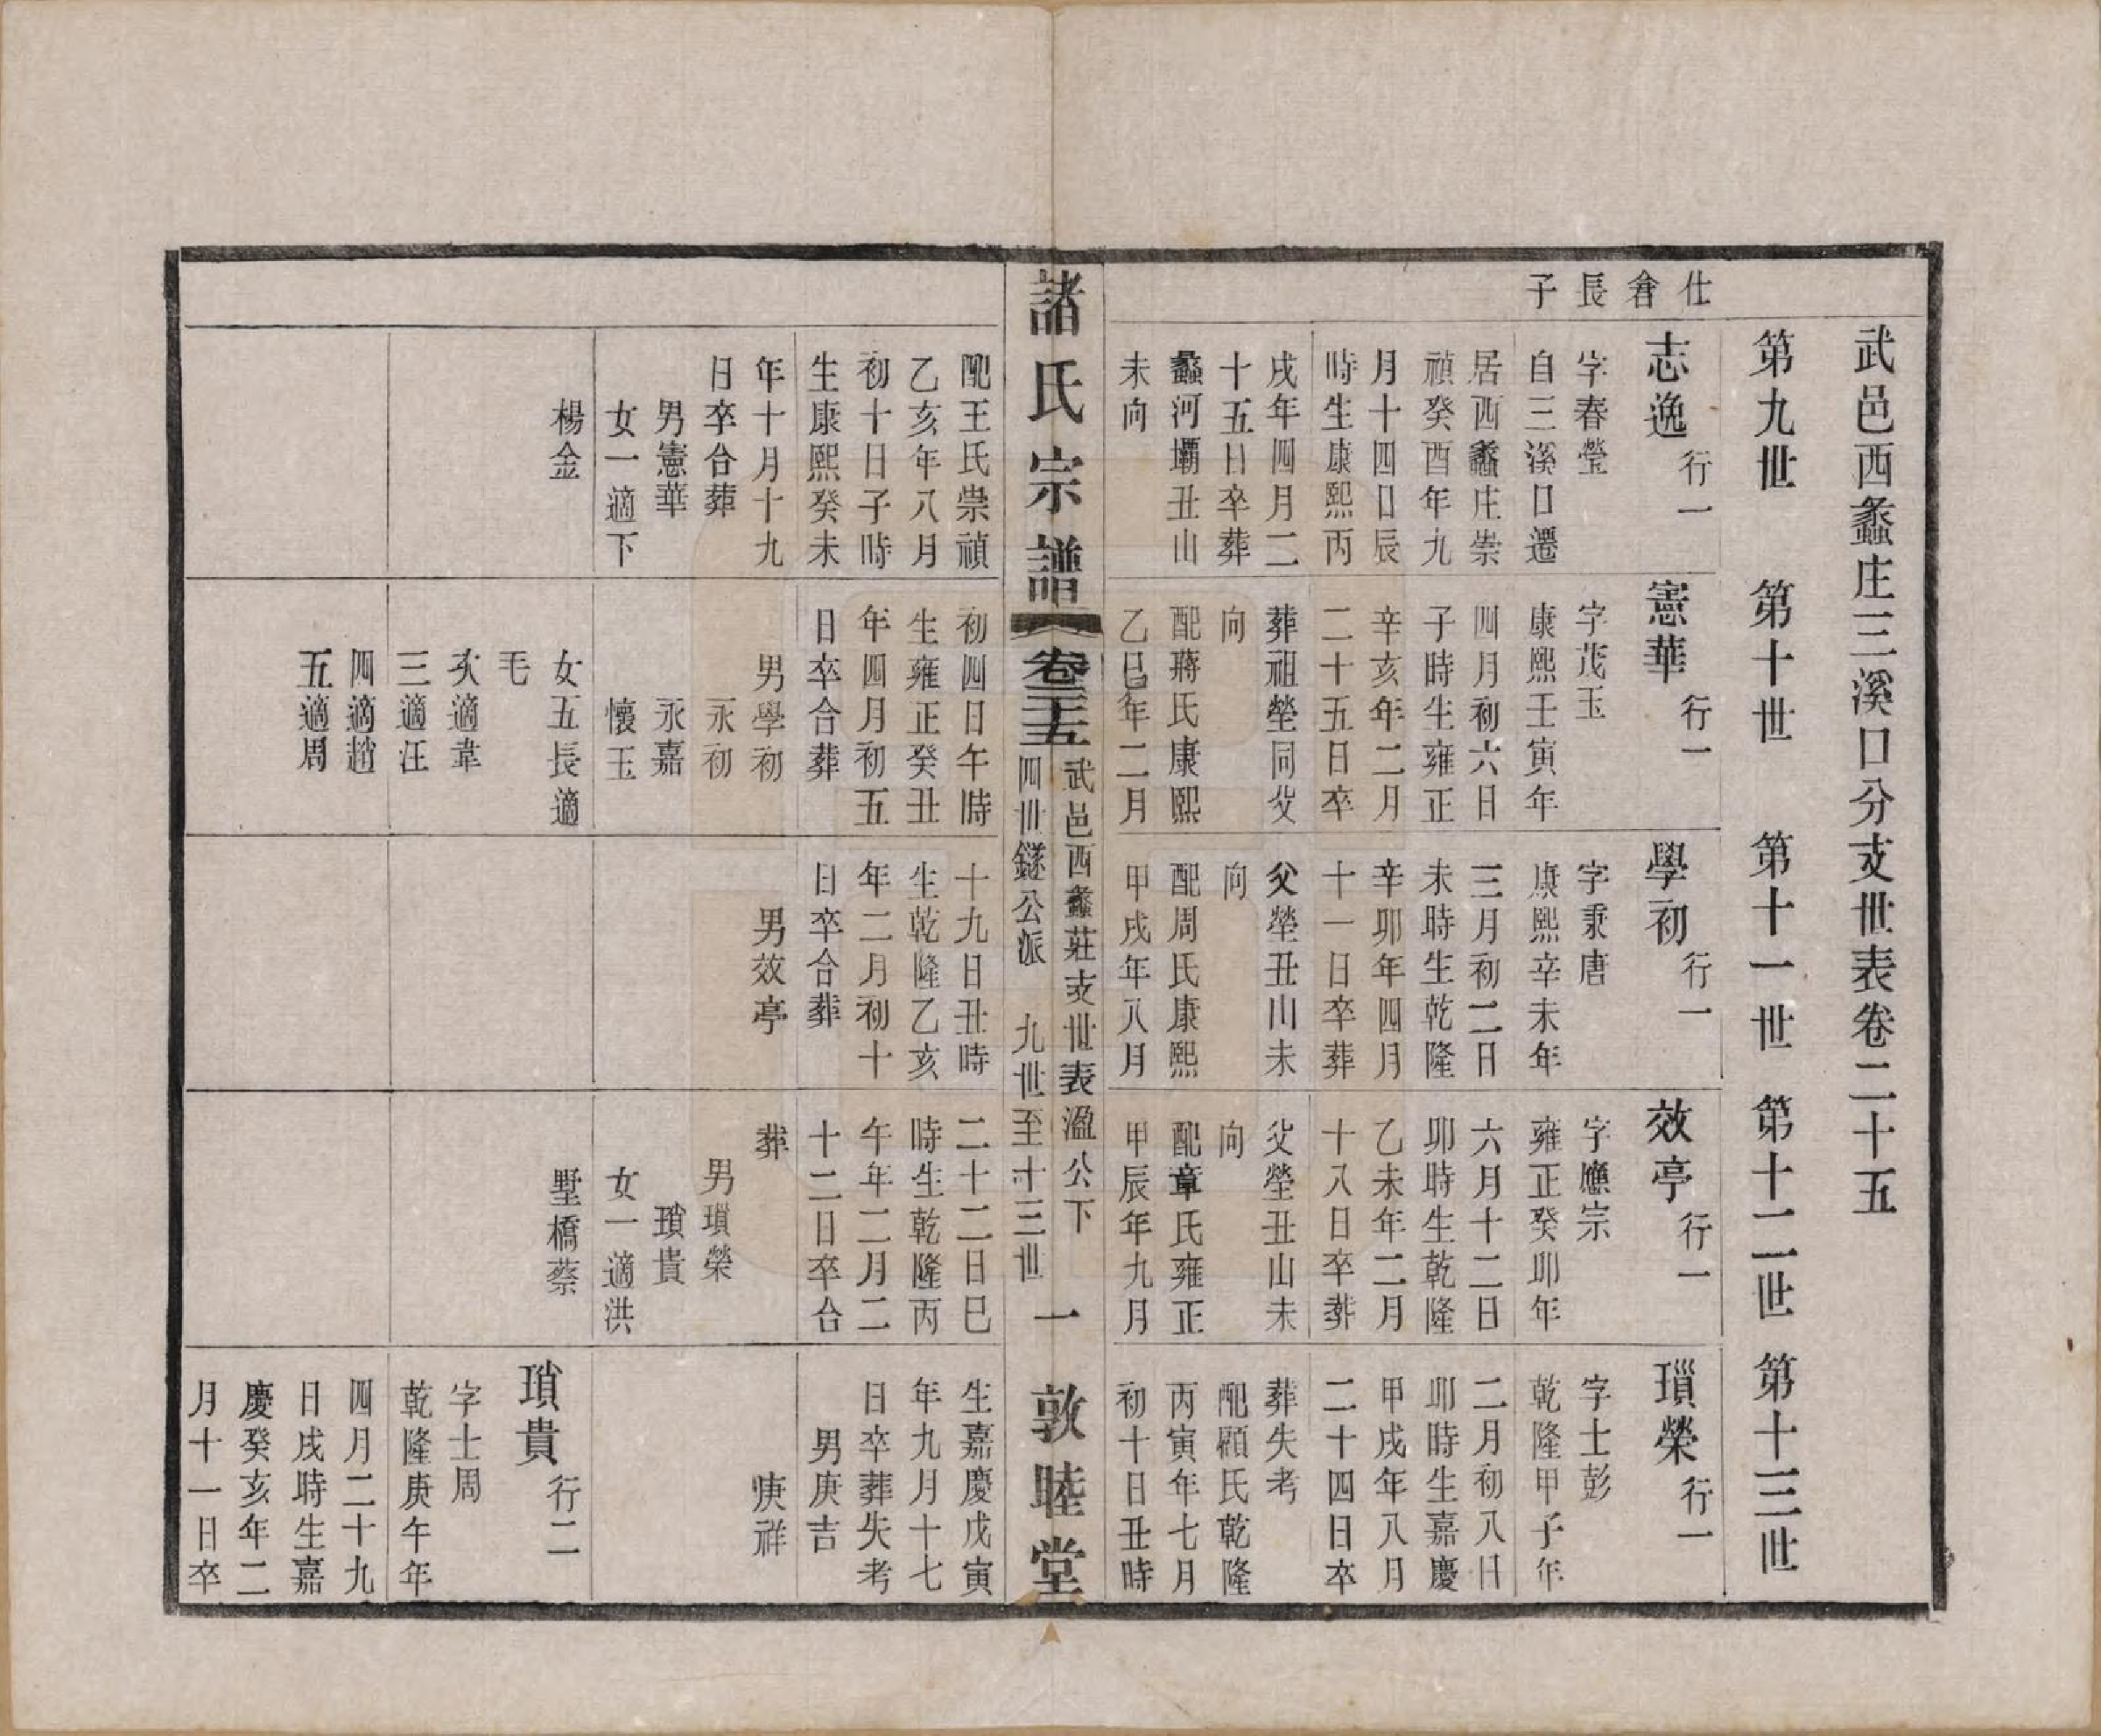 武邑西蠡庄三溪口分支世表卷二十五
第九世
第十世
第十一世
第十二世
第十三世
仕畣長子
志逸
行一
字春瑩
自三溪口遷
居西蠡庄崇
禎癸酉年九
月十四日辰
時生康熙丙
戌年四月二
十五日卒葬
蠡河壩丑山
未向
配王氏崇禎
乙亥年八月
初十日子時
生康熙癸未
年十月十九
日卒合葬
男憲華
女一適下
楊金
憲華
行一
字茂玉
康熙壬寅年
四月初六日
子時生雍正
辛亥年二月
二十五日卒
葬祖塋同父
向
配蔣氏康熙
乙巳年二月
初四日午時
生雍正癸丑
年四月初五
日卒合葬
男學初
永初
永嘉
懷玉
女五長適
毛
次適韋
三適汪
四適趙
五適周
學初
行一
字秉唐
康熙辛未年
三月初二日
未時生乾隆
辛卯年四月
十一日卒葬
父塋丑山未
向
配周氏康熙
甲戌年八月
十九日丑時
生乾隆乙亥
年二月初十
日卒合葬
男效亭
效亭
行一
字應宗
雍正癸卯年
六月十二日
卯時生乾隆
乙未年二月
十八日卒葬
父塋丑山未
向
配章氏雍正
甲辰年九月
二十二日巳
時生乾隆丙
午年二月二
十二日卒合
葬
男瑣榮
瑣貴
女一適洪
墅橋蔡
瑣榮
行一
字士彭
乾隆甲子年
二月初八日
卯時生嘉慶
甲戌年八月
二十四日卒
葬失考
配顧氏乾隆
丙寅年七月
初十日丑時
生嘉慶戊寅
年九月十七
日卒葬失考
男庚吉
庚祥
瑣貴
行二
字士周
乾隆庚午年
四月二十九
日戌時生嘉
慶癸亥年二
月十一日卒
諸氏宗譜
卷二十五
武邑西蠡莊支世表溋公下
四世鐩公派 九世至十三世
一
敦睦堂